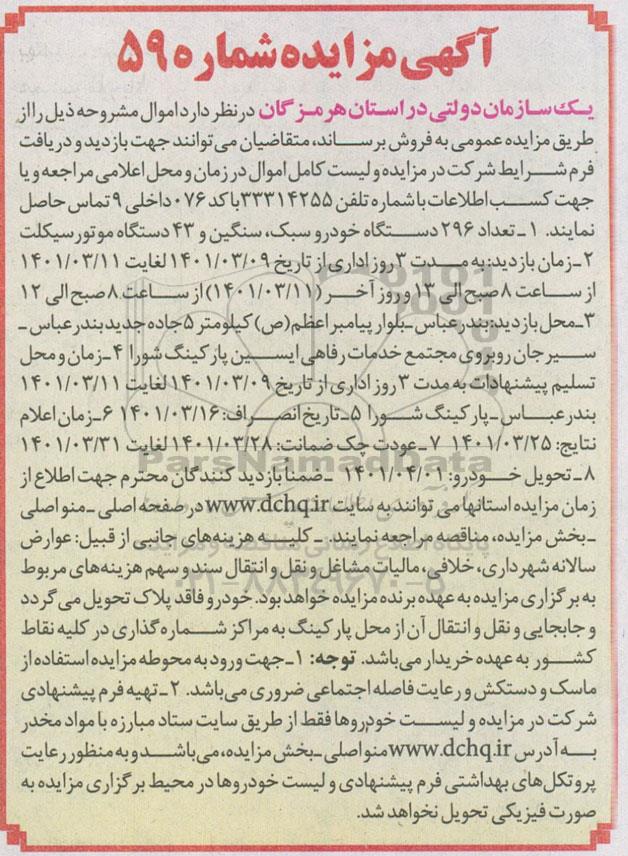 آگهی مزایده شماره ۵۹
یک سازمان دولتی در استان هرمزگان در نظر دارد اموال مشروحه ذیل را از
طریق مزایده عمومی به فروش برساند، متقاضیان می‌توانند جهت بازدید و دریافت
فرم شرایط شرکت در مزایده و لیست کامل اموال در زمان و محل اعلامی مراجعه و یا
جهت کسب اطلاعات با شماره تلفن ۳۳۳۱۴۲۵۵ با کد ۰۷۶ داخلی ۹ تماس حاصل
نمایند. ۱ـ تعداد ۲۹۶ دستگاه خودرو سبک، سنگین و ۴۳ دستگاه موتور سیکلت
۲ـ زمان بازدید: به مدت ۳ روز اداری از تاریخ ۱۴۰۱/۰۳/۰۹ لغایت ۱۴۰۱/۰۳/۱۱
از ساعت ۸ صبح الی ۱۳ و روز آخر (۱۴۰۱/۰۳/۱۱) از ساعت ۸ صبح الی ۱۲
۳ـ محل بازدید: بندرعباس ـ بلوار پیامبر اعظم(ص) کیلومتر ۵ جاده جدید بندرعباس ـ
سیرجان روبروی مجتمع خدمات رفاهی ایسین پارکینگ شورا ۴ـ زمان و محل
تسلیم پیشنهادات به مدت ۳ روز اداری از تاریخ ۱۴۰۱/۰۳/۰۹ لغایت ۱۴۰۱/۰۳/۱۱
بندرعباس ـ پارکینگ شورا ۵ـ تاریخ انصراف: ۱۴۰۱/۰۳/۱۶ ۶ـ زمان اعلام
نتایج: ۱۴۰۱/۰۳/۲۵ ۷ـ عودت چک ضمانت: ۱۴۰۱/۰۳/۲۸ لغایت ۱۴۰۱/۰۳/۳۱
۸ـ تحویل خودرو: ۱۴۰۱/۰۴/۰۱ ـ ضمنا بازدید کنندگان محترم جهت اطلاع از
زمان مزایده استانها می توانند به سایت www.dchq.ir در صفحه اصلی ـ منو اصلی
ـ بخش مزایده، مناقصه مراجعه نمایند. ـ کلیه هزینه‌های جانبی از قبیل: عوارض
سالانه شهرداری، خلافی، مالیات مشاغل و نقل و انتقال سند و سهم هزینه‌های مربوط
به برگزاری مزایده به عهده برنده مزایده خواهد بود. خودرو فاقد پلاک تحویل می گردد
و جابجایی و نقل و انتقال آن از محل پارکینگ به مراکز شماره گذاری در کلیه نقاط
کشور به عهده خریدار می‌باشد. توجه: ۱ـ جهت ورود به محوطه مزایده استفاده از
ماسک و دستکش و رعایت فاصله اجتماعی ضروری می‌باشد. ۲ـ تهیه فرم پیشنهادی
شرکت در مزایده و لیست خودروها فقط از طریق سایت ستاد مبارزه با مواد مخدر
به آدرس www.dchq.ir منو اصلی ـ بخش مزایده، می‌باشد و به منظور رعایت
پروتکل‌های بهداشتی فرم پیشنهادی و لیست خودروها در محیط برگزاری مزایده به
صورت فیزیکی تحویل نخواهد شد.
ParsNamadData
۰۲۱-۸۸۳۴۹۶۷۰-۵